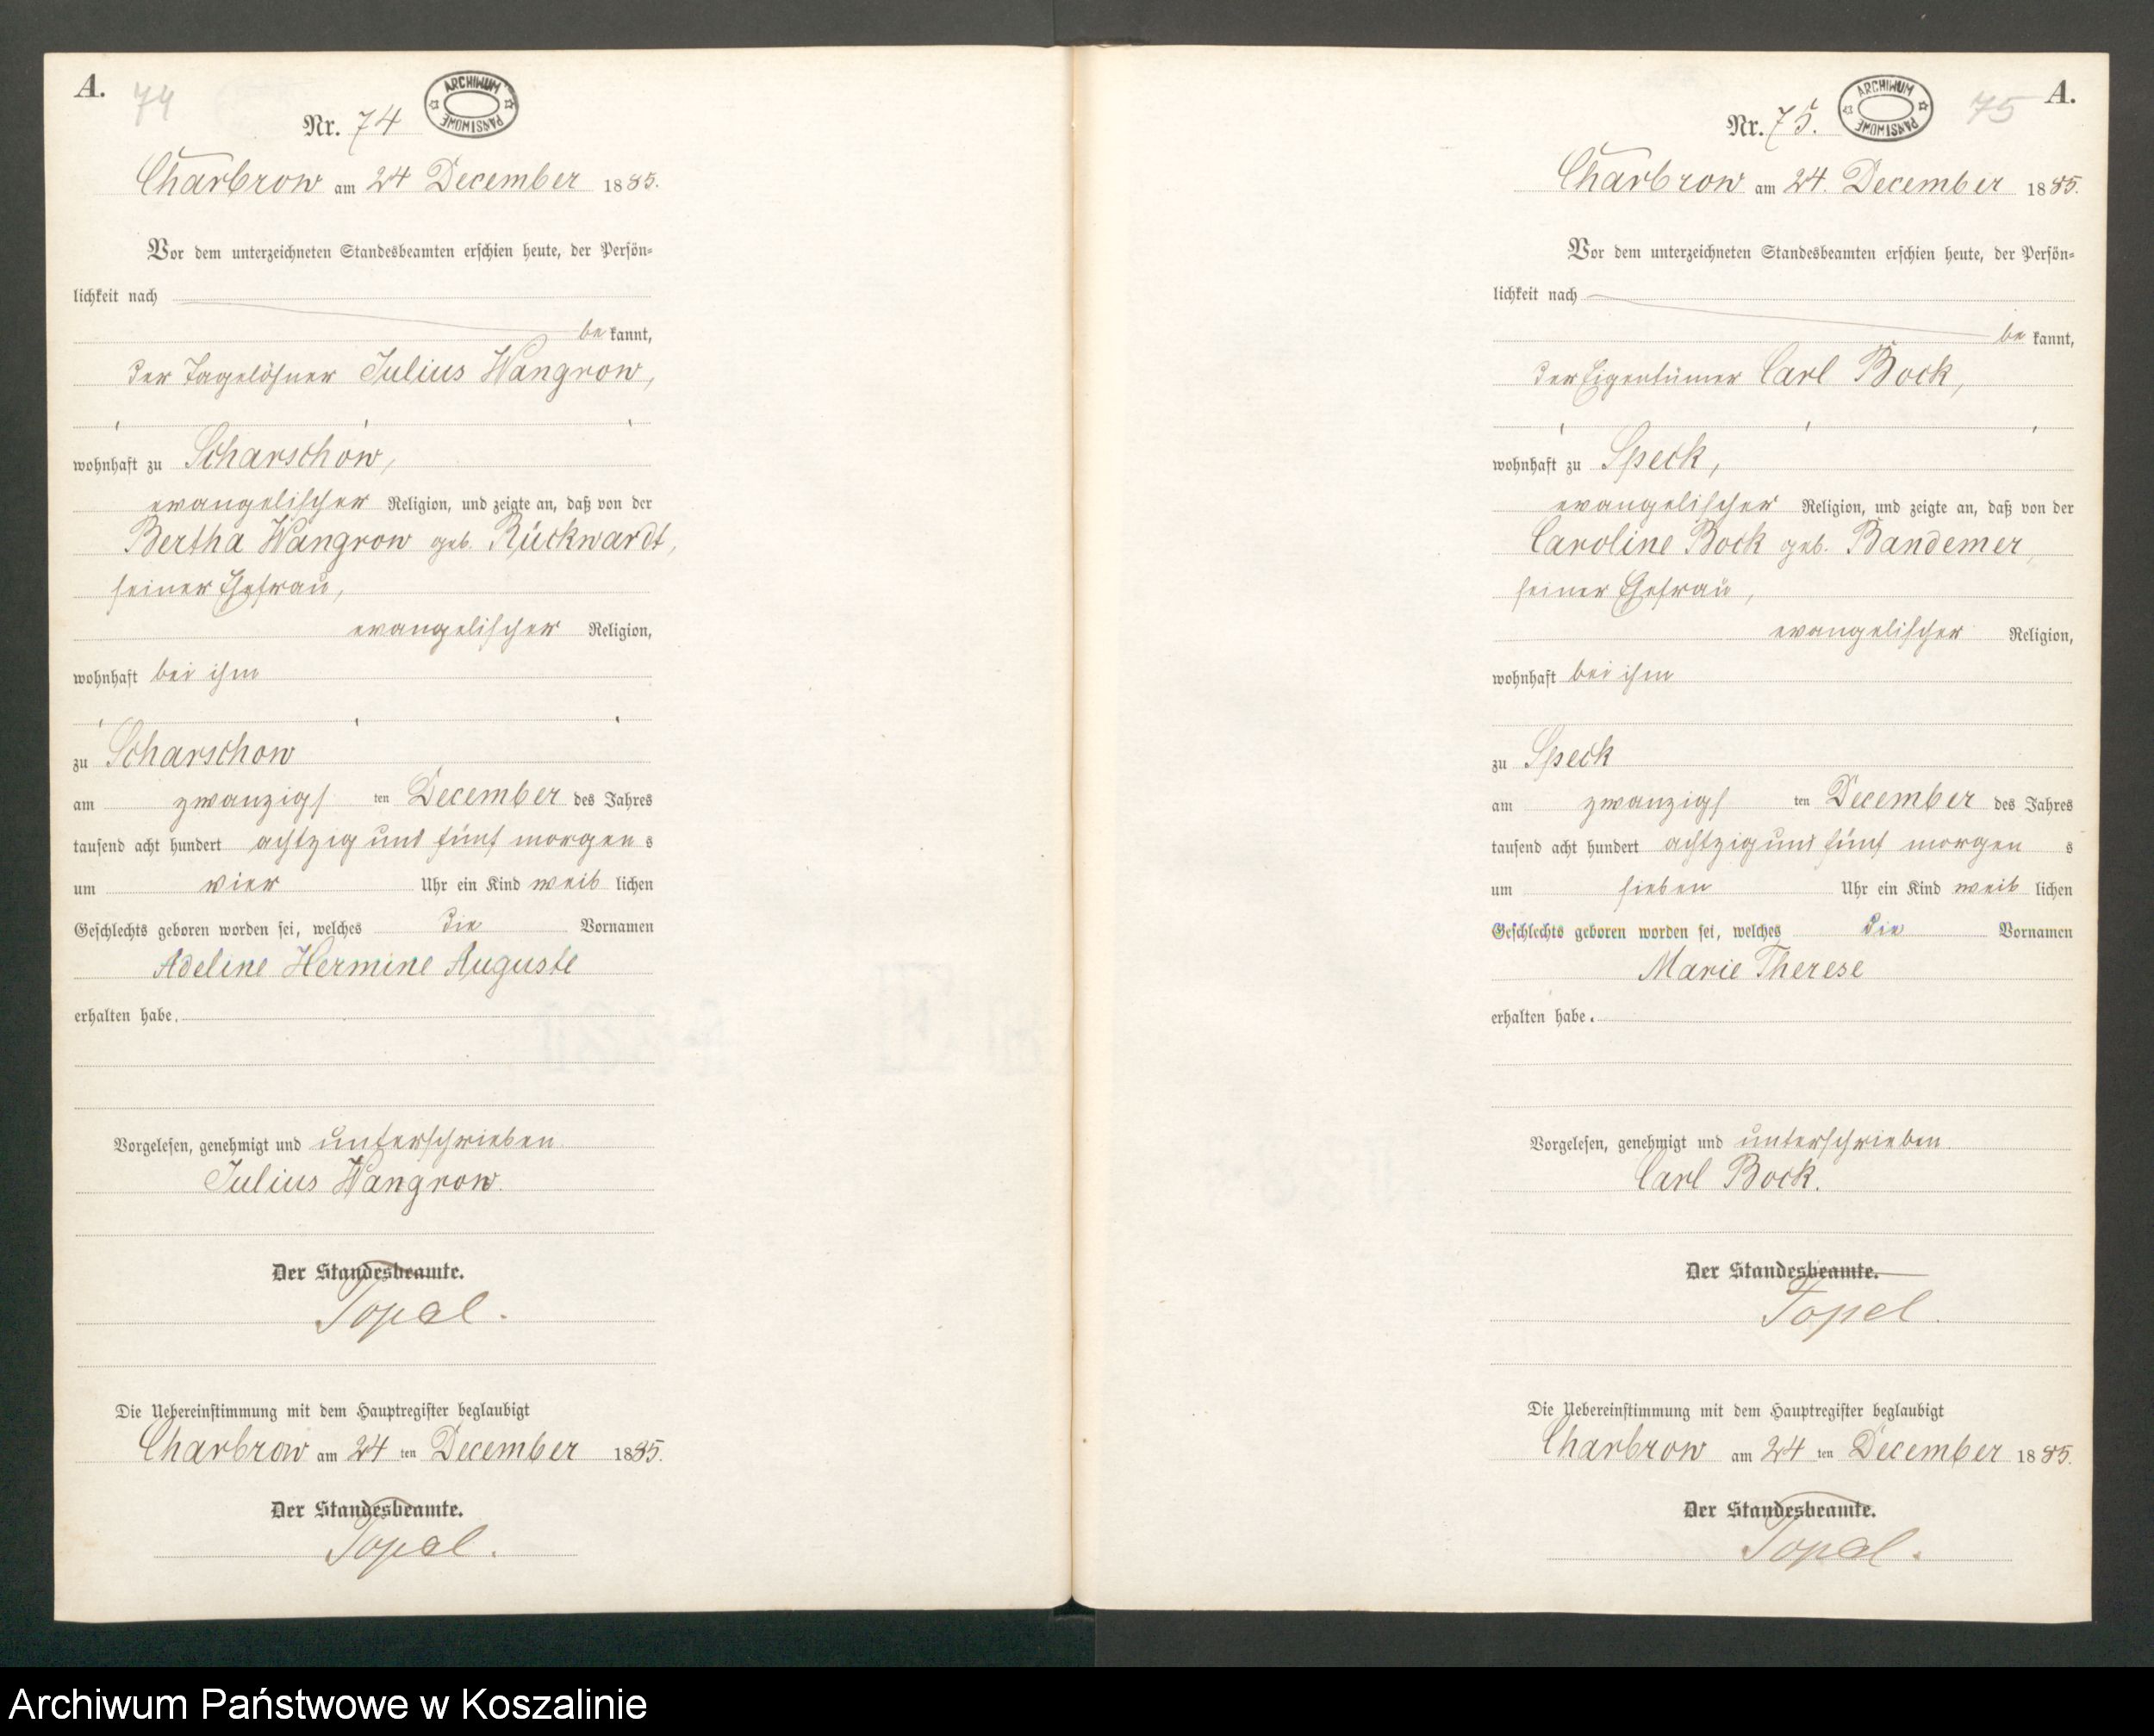 A.
74
Nr. 74
ARCHIWUM PAŃSTWOWE
Charbrow am 24 December 1885.
Vor dem unterzeichneten Standesbeamten erschien heute, der Persön-
lichkeit nach
be kannt,
der Tagelöhner Julius Wangrow,
wohnhaft zu Scharschow,
evangelischer Religion, und zeigte an, daß von der
Bertha Wangrow geb. Rückwardt,
seiner Ehefrau,
evangelischer Religion,
wohnhaft bei ihm
zu Scharschow
am zwanzigs ten December des Jahres
tausend acht hundert achtzig und fünf morgen s
um vier Uhr ein Kind weib lichen
Geschlechts geboren worden sei, welches die Vornamen
Adeline Hermine Auguste
erhalten habe.
Vorgelesen, genehmigt und unterschrieben.
Julius Wangrow.
Der Standesbeamte.
Topel.
Die Uebereinstimmung mit dem Hauptregister beglaubigt
Charbrow am 24 ten December 1885.
Der Standesbeamte.
Topel.
A.
75
Nr. 75.
ARCHIWUM PAŃSTWOWE
Charbrow am 24. December 1885.
Vor dem unterzeichneten Standesbeamten erschien heute, der Persön-
lichkeit nach
be kannt,
der Eigentümer Carl Bock,
wohnhaft zu Speck,
evangelischer Religion, und zeigte an, daß von der
Caroline Bock geb. Bandemer,
seiner Ehefrau,
evangelischer Religion,
wohnhaft bei ihm
zu Speck
am zwanzigs ten December des Jahres
tausend acht hundert achtzig und fünf morgen s
um sieben Uhr ein Kind weib lichen
Geschlechts geboren worden sei, welches die Vornamen
Marie Therese
erhalten habe.
Vorgelesen, genehmigt und unterschrieben.
Carl Bock.
Der Standesbeamte.
Topel.
Die Uebereinstimmung mit dem Hauptregister beglaubigt
Charbrow am 24 ten December 1885.
Der Standesbeamte.
Topel.
Archiwum Państwowe w Koszalinie